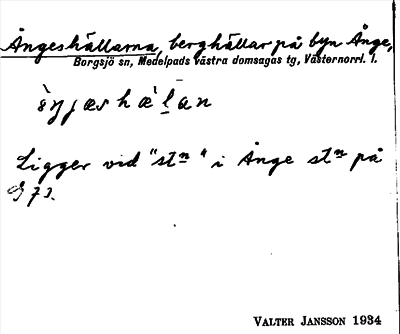 Ångeshällarna, berghällar på byn Ånge,
Borgsjö sn, Medelpads västra domsagas tg, Västernorrl. l.
Ligger vid "stn" i Ånge stn på
73.
VALTER JANSSON 1934